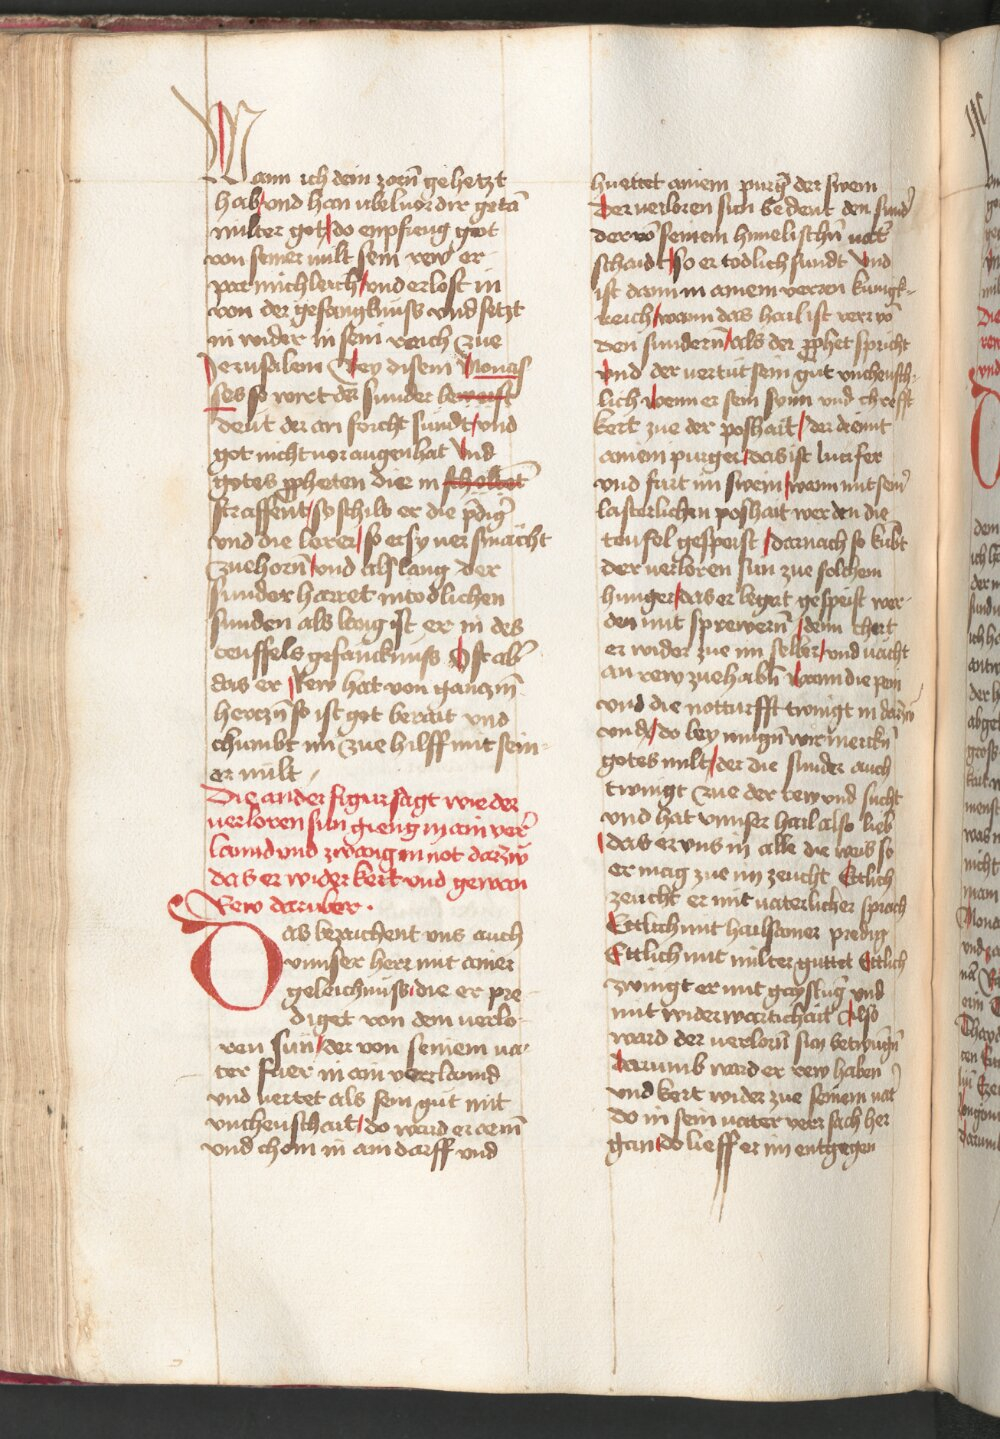 Wann ich dein zorñ gehetzt
hab und han ubel uor dir getã
milter got do enpfieng got
von seiner milt sein rew er
parmichleich und erlost in
von der gefangknuss und setzt
in wider in sein reich zue
Jerusalem Bey disem Monas
ses so wirt der sunder beweist
deut der an forcht sündt und
got nicht uor augen hat Und
gotes ꝓpheten die in scholten
straffent so schilt er die p̃dig̃
und die lerer so er sy uersmächt
zuehorñ und als lang der
sunder harret in todlichen
sunden als lang ist er in des
teuffels gefanckñuss Ist ab̃
das er Rew hat von ganczm̃
herczñ so ist got berait und
chumbt im zue hilff mit sein
er milt
Die ander figur sagt wie der
uerloren sun gieng in ain ver̃
lannd und zwang in not darzw̃
das er wider kert und gewan
Rew daruber ·
Das bezaichent uns auch
unnser herr mit ainer
geleichnuss die er pre
diget von dem uerlo
ren sun der von seinem ua
ter fuer in ain verr lannd
und uertet als sein gut mit
uncheuschait do ward er arm̃
und chom in ain darff und
huettet ainem purg̃ der swein
Der uerloren sun bedeut den sund̃
der võ seinem himelischñ uat̃
schaidt so er todlich sundt Und
ist dann in ainem verren kunigk
reich wann das hail ist verr võ
den sundern als der ꝓphet spricht
Und der uertut sein gut uncheusch
lich wenn er sein synn und chrefft
kert zue der poshait der dient
ainem purger das ist lucifer
und furt im swein wann mit sein̄
lasterlichen poshait werden die
teufel gespeist darnach so kũbt
der uerloren sun zue solchem
hunger das er begert gespeist wer
den mit sprewern denn chert
er wider zue im selber und vächt
an rew zue habñ wann die pein
und die notturfft twingt in darzw̃
und do bey mugñ wir merckñ
gotes milt der die sunder auch
twingt zue der rew und sucht
und hat unnser hail also lieb
das er uns in alle die weis so
er mag zue im zeucht Ettlich
zeucht er mit uaterlicher sprach
Ettlich mit hailsamer predig
Ettlich mit milter guttet Ettlich
zwingt er mit gayslung und
mit widerwartichait Also
ward der uerlorñ sun betwungñ
darumb ward er rew haben
und kert wider zue seinem uat̃
do in sein uater verr sach her
gan do lieff er im entgegen